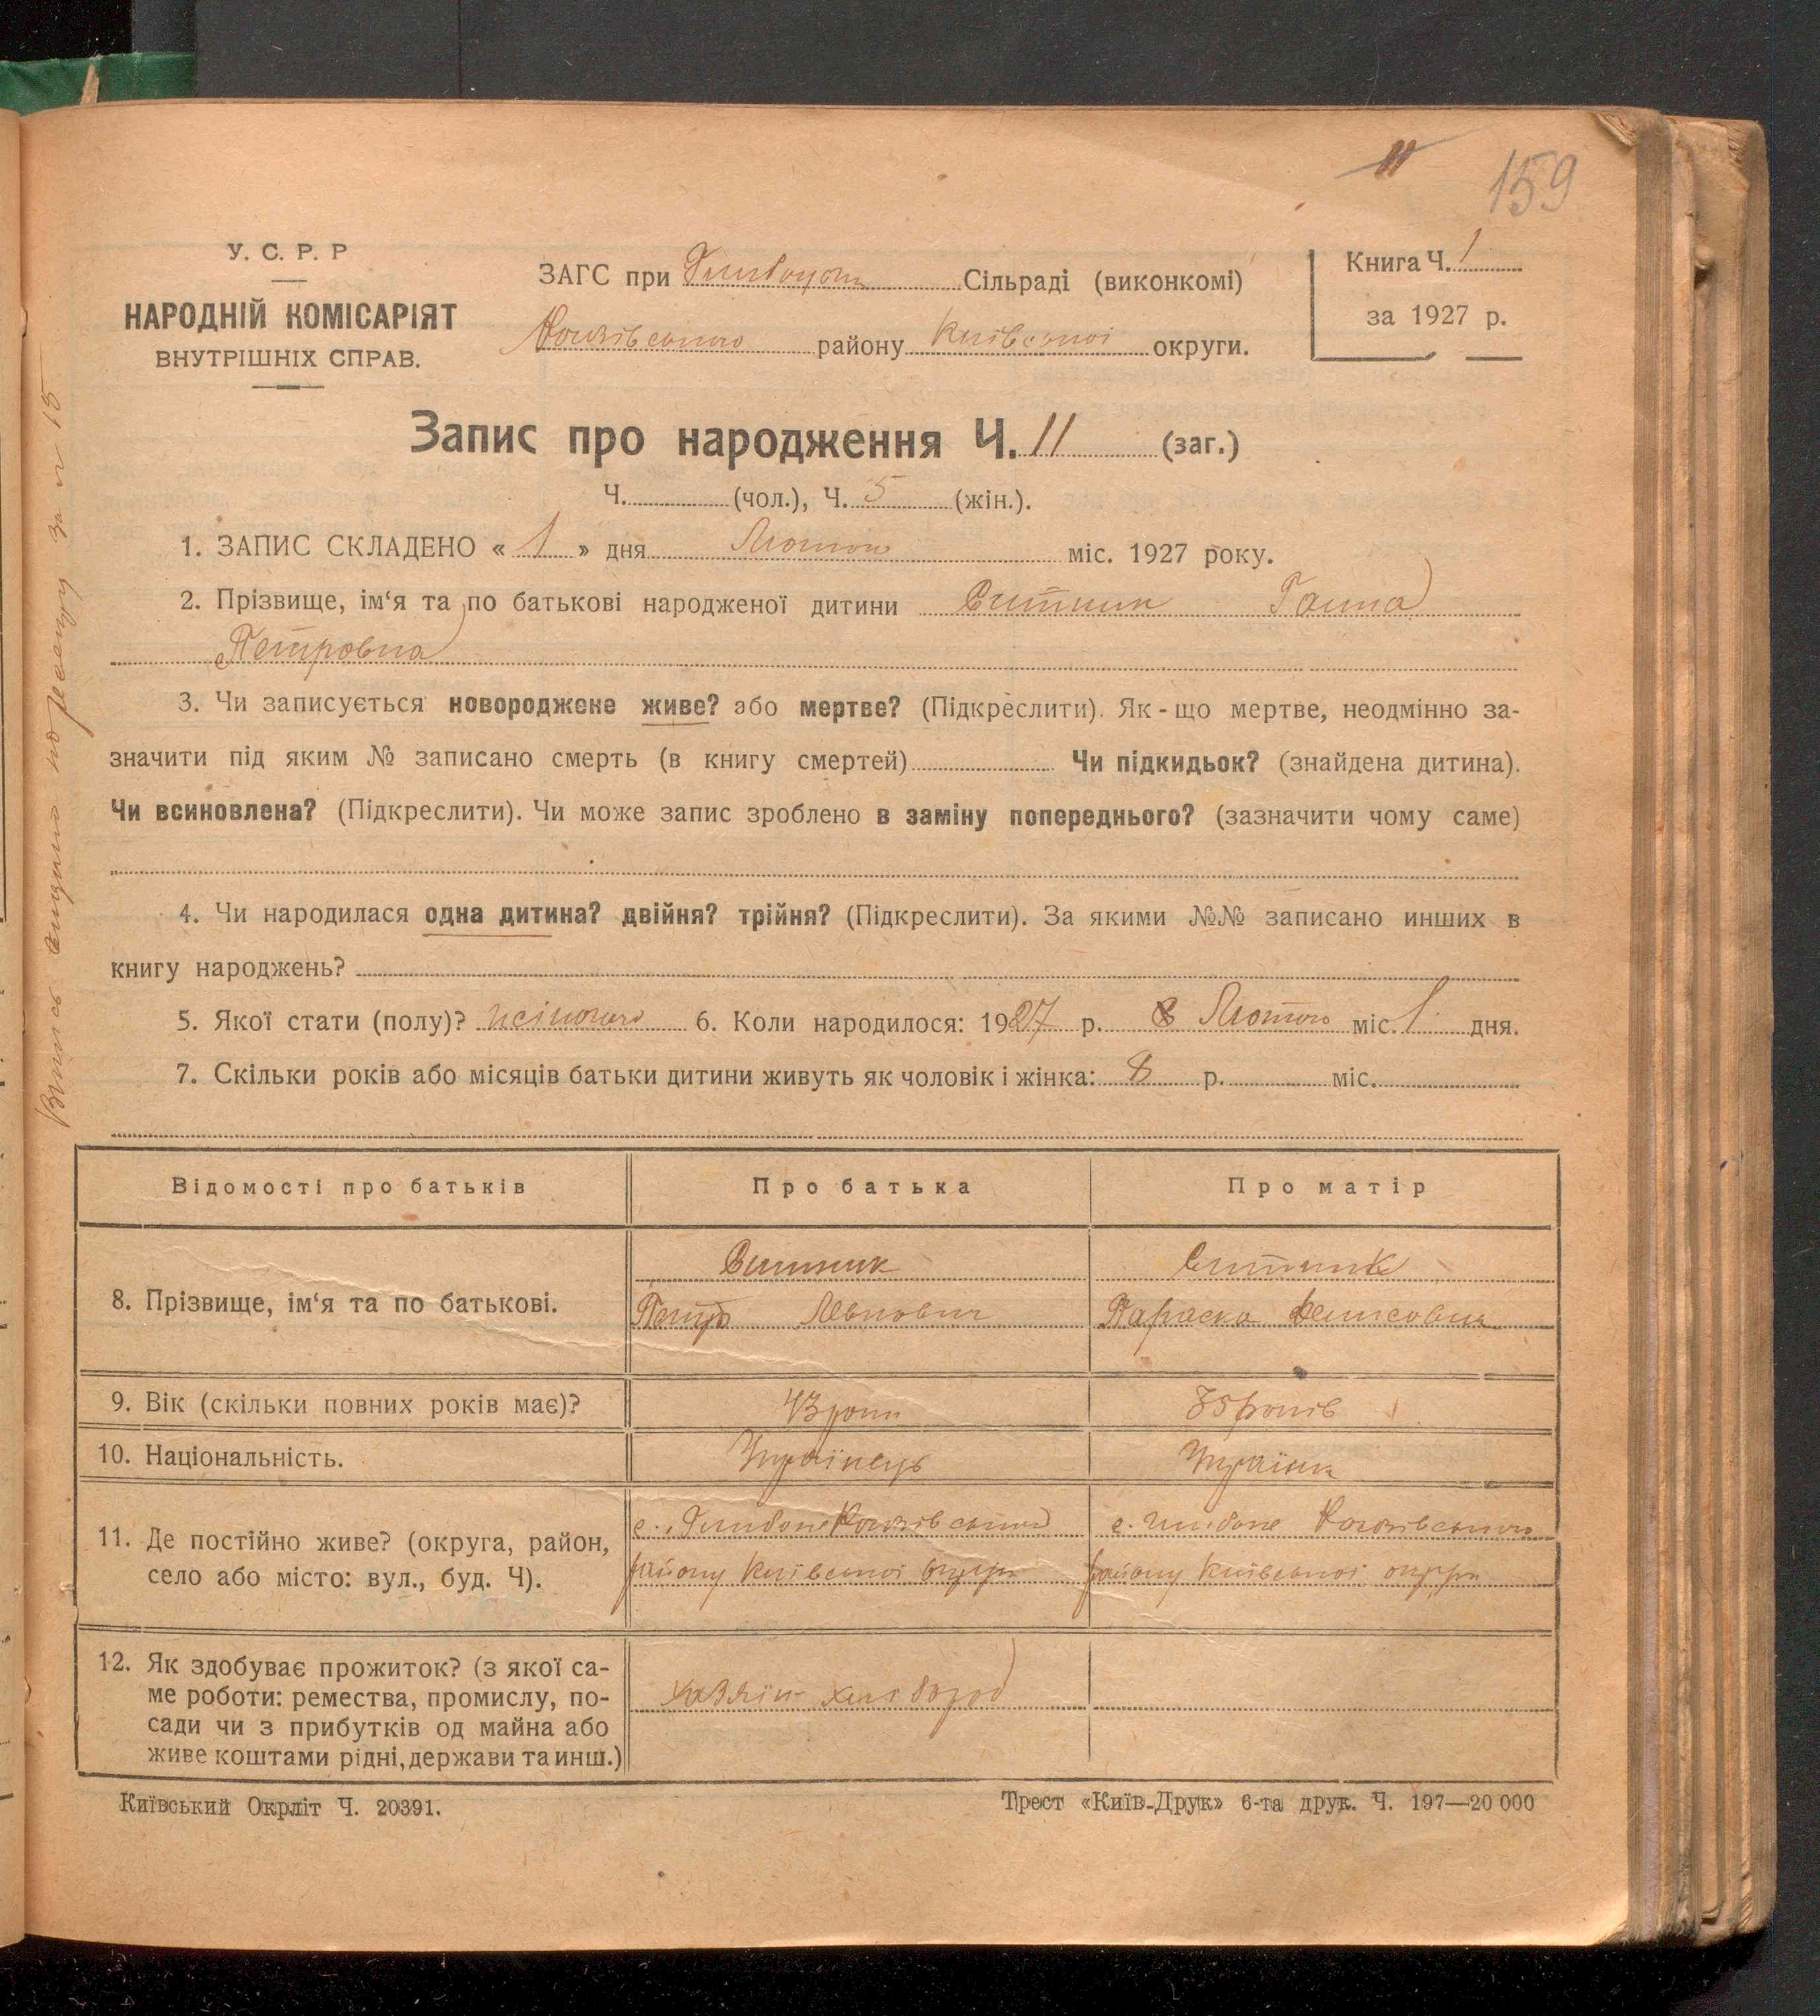 11
159
У. С. Р. Р
НАРОДНІЙ КОМІСАРІЯТ
ВНУТРІШНІХ СПРАВ.
ЗАГС при Сільраді (виконкомі)
району Київської округи.
Книга Ч. 1
за 1927 р.
Запис про народження Ч. 11 (заг.)
Ч. (чол.), Ч. 5 (жін.).
1. ЗАПИС СКЛАДЕНО « 1 » дня Лютого міс. 1927 року.
2. Прізвище, ім‘я та по батькові народженої дитини Ситник Ганна
Петровна
3. Чи записується новороджене живе? або мертве? (Підкреслити). Як-що мертве, неодмінно за-
значити під яким № записано смерть (в книгу смертей) Чи підкидьок? (знайдена дитина).
Чи всиновлена? (Підкреслити). Чи може запис зроблено в заміну попереднього? (зазначити чому саме)
4. Чи народилася одна дитина? двійня? трійня? (Підкреслити). За якими №№ записано инших в
книгу народжень?
5. Якої стати (полу)? жіночого 6. Коли народилося: 1927 р. Лютого міс. 1 дня.
7. Скільки років або місяців батьки дитини живуть як чоловік і жінка: 8 р. міс.
Відомості про батьків Про батька Про матір
8. Прізвище, ім‘я та по батькові.
Ситник Ситник
Петро Параска Денисовна
9. Вік (скільки повних років має)? 43 роки 35 років
10. Національність. Українець Українка
11. Де постійно живе? (округа, район,
село або місто: вул., буд. Ч).
с. с.
району Київської округи району Київської округи
12. Як здобуває прожиток? (з якої са-
ме роботи: ремества, промислу, по-
сади чи з прибутків од майна або
живе коштами рідні, держави та инш.)
хазяїн хлібороб
Київський Окрліт Ч. 20391.
Трест «Київ-Друк» 6-та друк. Ч. 197—20 000